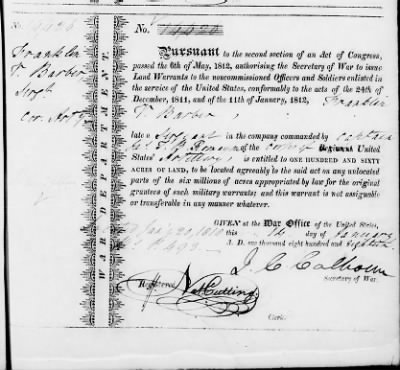 No. 14420
Franklin
T. Barber
Sergt
Cor. Art
WAR DEPARTMENT.
Pursuant to the second section of an Act of Congress,
passed the 6th of May, 1812, authorising the Secretary of War to issue
Land Warrants to the noncommissioned Officers and Soldiers enlisted in
the service of the United States, conformably to the acts of the 24th of
December, 1811, and of the 11th of January, 1812, Franklin
T. Barber,
late a Sergeant in the company commanded by Captain
of the Corps Regiment United
States' Artillery, is entitled to ONE HUNDRED AND SIXTY
ACRES OF LAND, to be located agreeably to the said act on any unlocated
parts of the six millions of acres appropriated by law for the original
grantees of such military warrants; and this warrant is not assignable
or transferable in any manner whatever.
GIVEN at the War Office of the United States,
this day of January
A. D. one thousand eight hundred and eighteen.
J. C. Calhoun
Secretary of War.
Registered
Nat Cutting
Clerk.